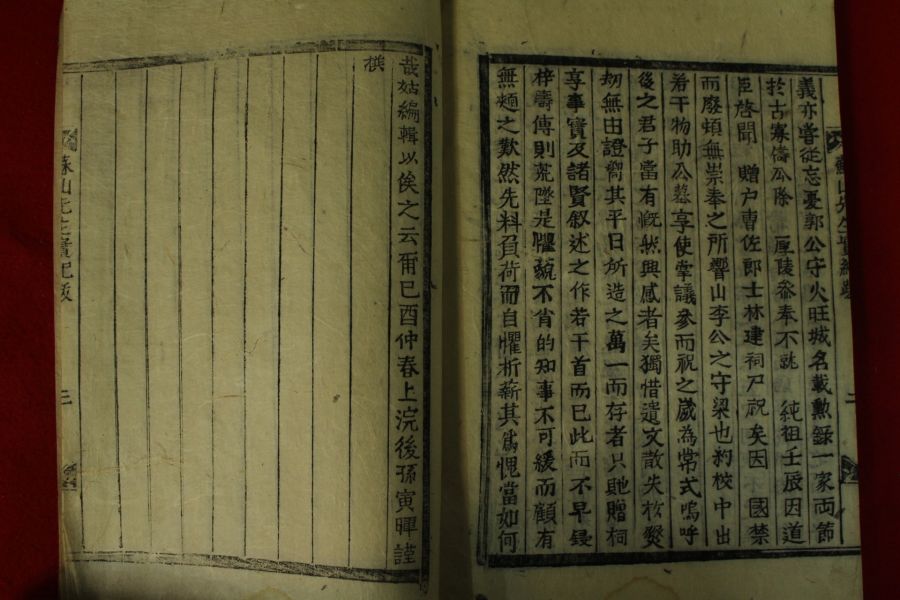 義亦嘗從忘憂郭公守火旺城名載勳錄一家兩節
於古寡儔公除 厚陵參奉不就 純祖壬辰因道
臣啓聞 贈戶曹佐郎士林建祠尸祝矣因 國禁
而廢頓無崇奉之所響山李公之守梁也約校中出
若干物助公墓享使掌議參而祝之歲為常式嗚呼
後之君子當有慨然興感者矣獨惜遺文散失於燹
刼無由證嚮其平日所造之萬一而存者只貤贈祠
享事實及諸賢叙述之作若干首而已此而不早鋟
梓壽傳則荒墜是懼藐不肖的知事不可緩而顧有
無類之歎然先料負荷而自懼析薪其為愧當如何
哉姑編輯以俟之云爾己酉仲春上浣後孫寅暉謹
撰
蘇山先生實記跋
三
二